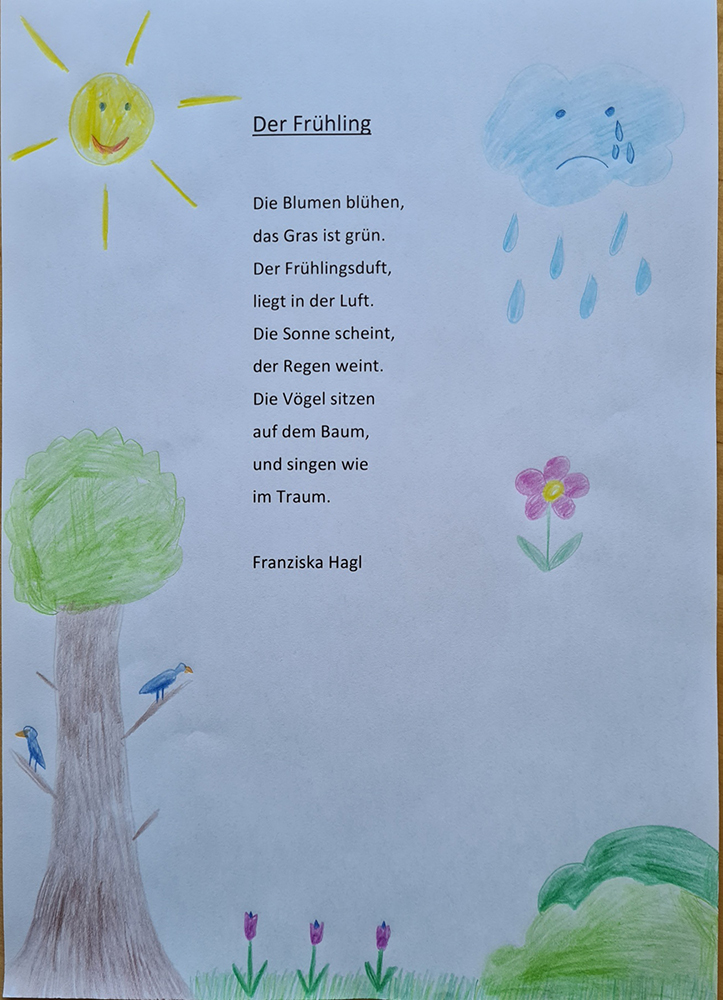 Der Frühling
Die Blumen blühen,
das Gras ist grün.
Der Frühlingsduft,
liegt in der Luft.
Die Sonne scheint,
der Regen weint.
Die Vögel sitzen
auf dem Baum,
und singen wie
im Traum.
Franziska Hagl